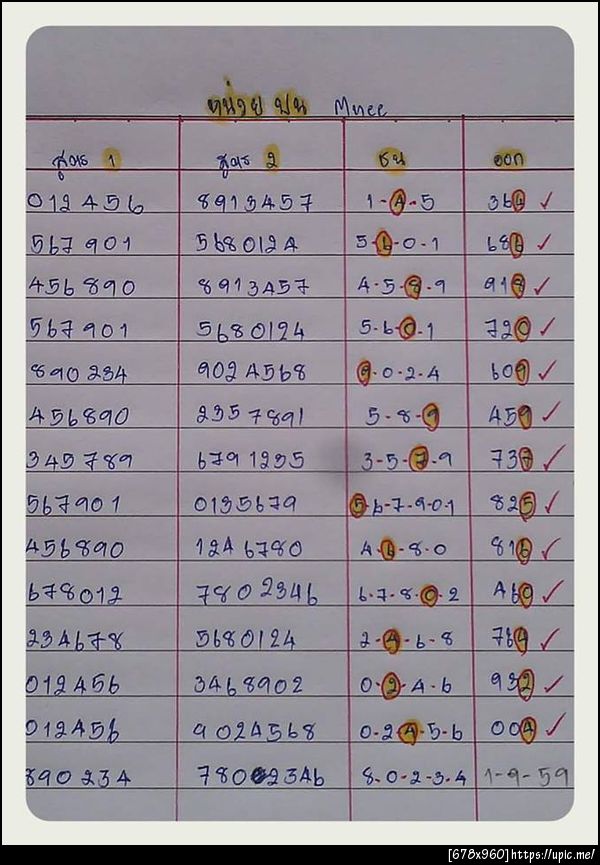 หน่วย บน Mnee
สูตร 1 สูตร 2 ชน ออก
012456 8913457 1-4-5 364 ✓
567901 5680124 5-6-0-1 686 ✓
456890 8913457 4-5-8-9 918 ✓
567901 5680124 5-6-0-1 720 ✓
890234 9024568 9-0-2-4 609 ✓
456890 2357891 5-8-9 459 ✓
345789 6791235 3-5-7-9 737 ✓
567901 0135679 5-6-7-9-0-1 825 ✓
456890 1246780 4-6-8-0 816 ✓
678012 7802346 6-7-8-0-2 460 ✓
234678 5680124 2-4-6-8 764 ✓
012456 3468902 0-2-4-6 932 ✓
012456 9024568 0-2-4-5-6 004 ✓
890234 7802346 8-0-2-3-4 1-9-59
[678x960]https://upic.me/